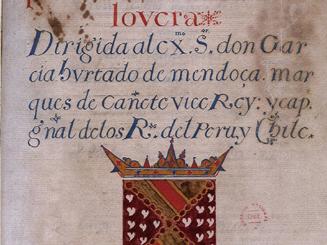 lovera
Dirigida al ex.mo S.or don Gar
cia hurtado de mendoça. mar
ques de Cañete vice Rey: y cap.
gñal de los R.os del Peru y Chile.
CHILE